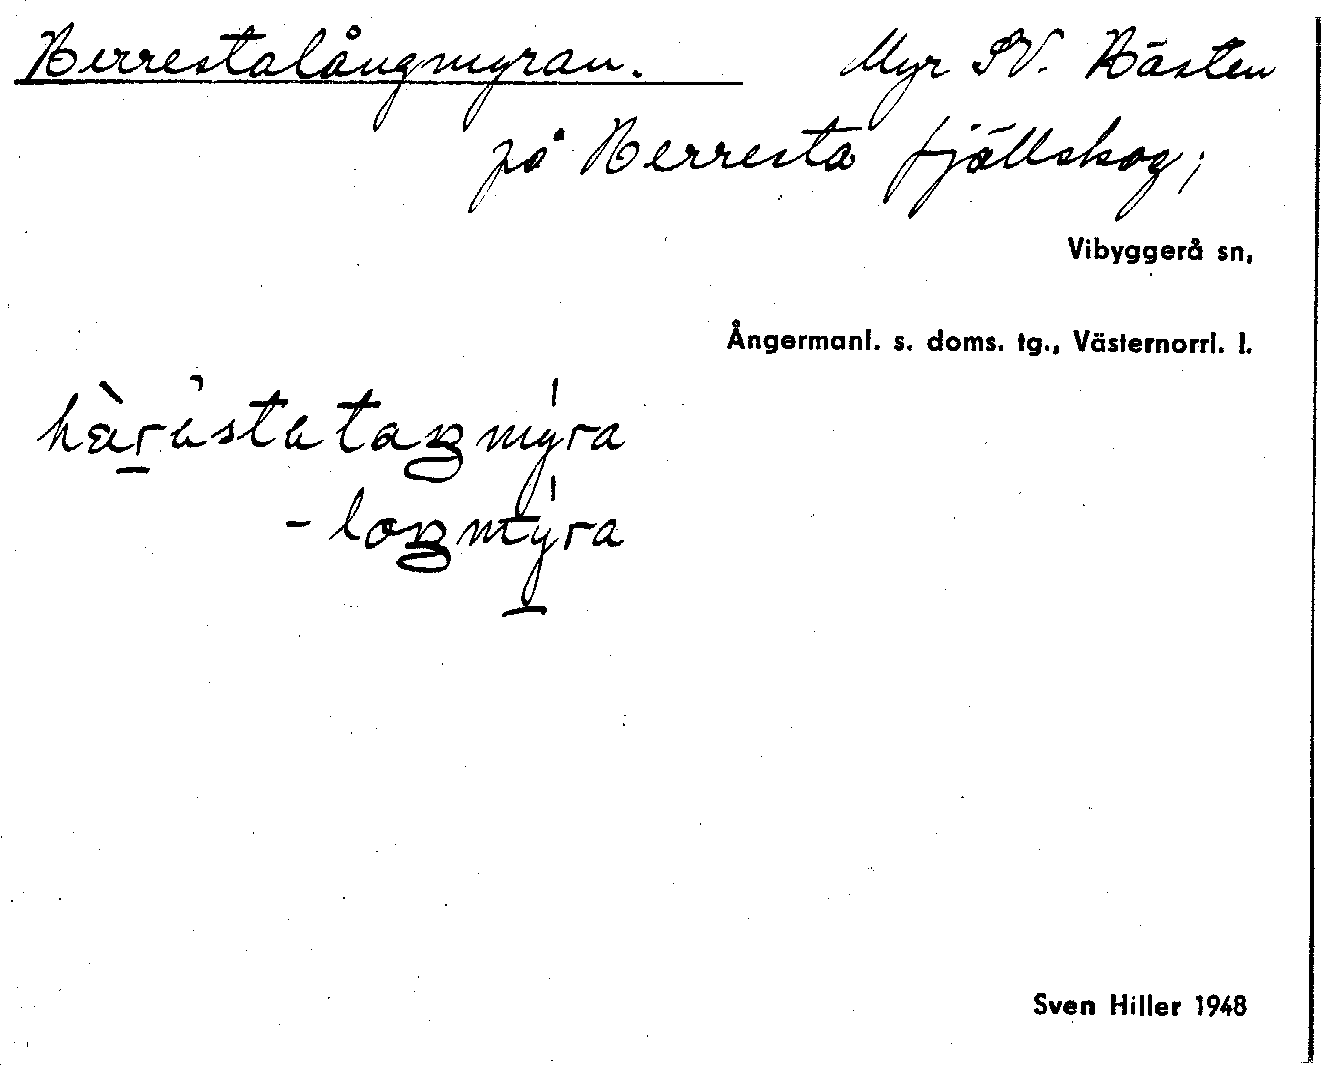 Herrestalångmyran. Myr SV. Hästen
på Herresta fjällskog;
Vibyggerå sn,
Ångermanl. s. doms. tg., Västernorrl. l.
Sven Hiller 1948